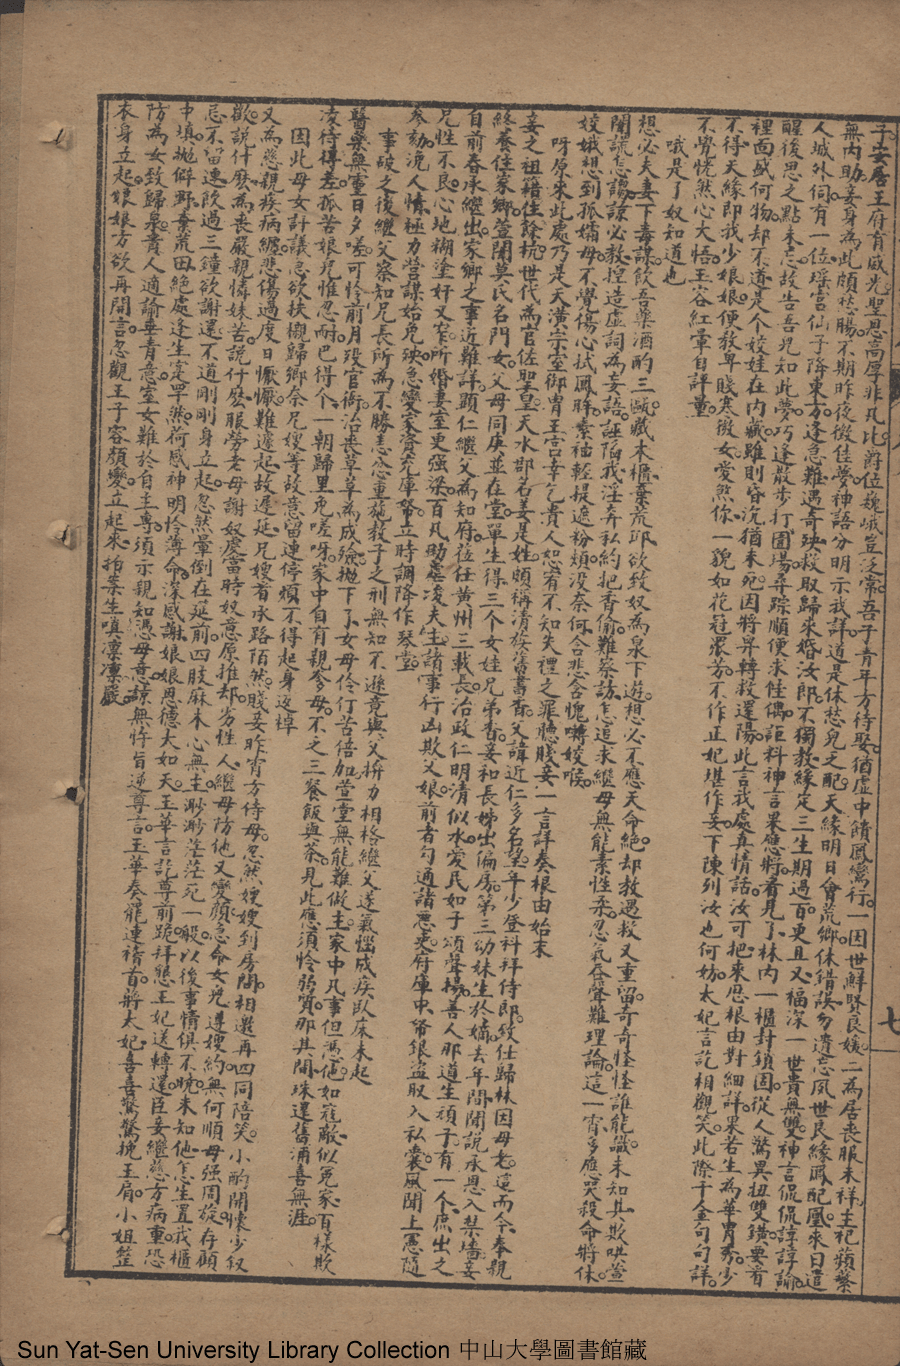 子安居王府肯威光聖恩高厚非凡比爵位巍峨豈泛常吾子青年方待娶猶虛中饋鳳鸞行一因世鮮賢良媛二為居喪服未祥主祀蘋蘩
無內助妾身為此頗愁腸不期昨夜徵佳夢神語分明示我詳道是休愁兒之配天緣明日會荒鄉休錯誤勿遺忘夙世良緣鳳配凰來日遣
人城外伺有一位瑤宮仙子降東方逢急難遇奇殃救取歸來婚汝郎不獨教緣定三生期過百更且又福深一世貴無雙神言侃侃諄諄諭
醒後思之點未忘故告吾兒知此夢巧逢散步打圍場尋踪順便求佳偶詎料神言果應將看見了林內一櫃封鎖固從人驚異扭雙鐄要看
裡面盛何物却不道是个姣娃在內藏雖則容沉猶未死因將舁轉救還陽此言我處真情話汝可把來歷根由對細詳果若生為華胄秀少
不得天緣即我少娘娘便教卑賤寒微女愛煞你一貌如花冠眾芳不作正妃堪作妾下陳列汝也何妨太妃言訖相觀笑此際千金句句詳
不覺恍然心大悟玉容紅暈自評量
哦是了奴知道也
想必夫妻下毒謀飲吾藥酒酌三甌藏木櫃棄荒邱欲致奴為泉下遊想必不應天命絕却教遇救又重留奇奇怪怪誰能識未知其欺哄蓋
闇謊怎謅諒必教捏造虛詞為妾語誣陷我淫奔私約把香偷難察訪怎追求繼母無能素性柔忍氣吞聲難理論這一宵多應哭殺命將休
姣娥想到孤孀母不覺傷心拭鳳眸素袖輕提遮粉頰沒奈何含悲含愧囀姣喉
呀原來此處乃是天潢宗室御胄王宮幸乞貴人恕宥不知失裡之罪聽賤妾一言詳奏根由始末
妾之祖籍住餘杭世代為官佐聖皇天水郡名姜是姓頗稱清族富書香父諱近仁多名望年少登科拜侍郎致仕歸林因母老這而今奉親
終養住家鄉萱闈莫氏名門女父母同庚並在堂單生得三个女娃兄弟香妾和長姊出偏房第三幼妹生於嫡去年間聞說承恩入禁墻妾
自前春承繼出家鄉之事近難詳顯仁繼父為知府莅任黃州三載長治政仁明清似水愛民如子頌聲揚善人那道生頑子有一个庶出之
兄性不良心地糊塗奸又窄所婚妻室更强梁百凡助虐凌夫主諸事行凶欺父娘前者勾通諸惡吏府庫中帑銀盜取入私囊風聞上憲隨
參劾浼人情極力營謀始免殃急變家資充庫帑立時調降作琴堂
事破之後繼父察知兄長所為不勝恚忿重施教子之刑無知不遜竟與父拚力相格繼父遂氣惱成疾臥床未起
醫藥無靈日夕嗟可怜前月歿官衙治喪草草為成殮拋下了女母伶仃苦倍加萱堂無能難做主家中凡事但憑他如寇敵似冤家百樣欺
凌待得差孤苦娘兒惟忍耐巴得个一朝歸里免嗟呀家中自有親爹母不乏三餐飯與茶見此應須怜弱質那其間珠還舊浦喜無涯
因此母女計議急欲扶櫬歸鄉奈兄嫂等故意留連停頓不得起身返棹
又為慈親疾病纏悲傷過度日懨懨難遽起故遲延兄嫂看承路陌然賤妾昨宵方侍母忽然嫂嫂到房間相邀再四同陪笑小酌開懷少叙
歡說什麽為喪嚴親憐妹苦說什麽服勞老母謝奴慶當時奴意原推却劣性人繼母防他又變顏急命女兒遵嫂約無何順母强周旋存顧
忌不留連飲過三鐘欲謝還不道剛剛身立起忽然暈倒在筵前四肢麻木心無主渺渺茫茫死一般以後事情俱不曉未知他怎生置我櫃
中填拋僻野棄荒田絕處逢生定罕然荷感神明怜薄命深感謝娘娘恩德大如天玉華言訖尊前跪拜懇王妃送轉還臣妾繼慈方病重恐
防為女致歸泉貴人適諭垂青意室女難於自主專須示親知憑母意諒無忤旨逆尊言玉華奏罷連稽首將太妃喜喜驚驚挽玉肩小姐筵
本身立起娘娘方欲再開言忽觀王子容顏變立起來拍案生嗔凛凛嚴
七
Sun Yat-Sen University Library Collection 中山大學圖書館藏